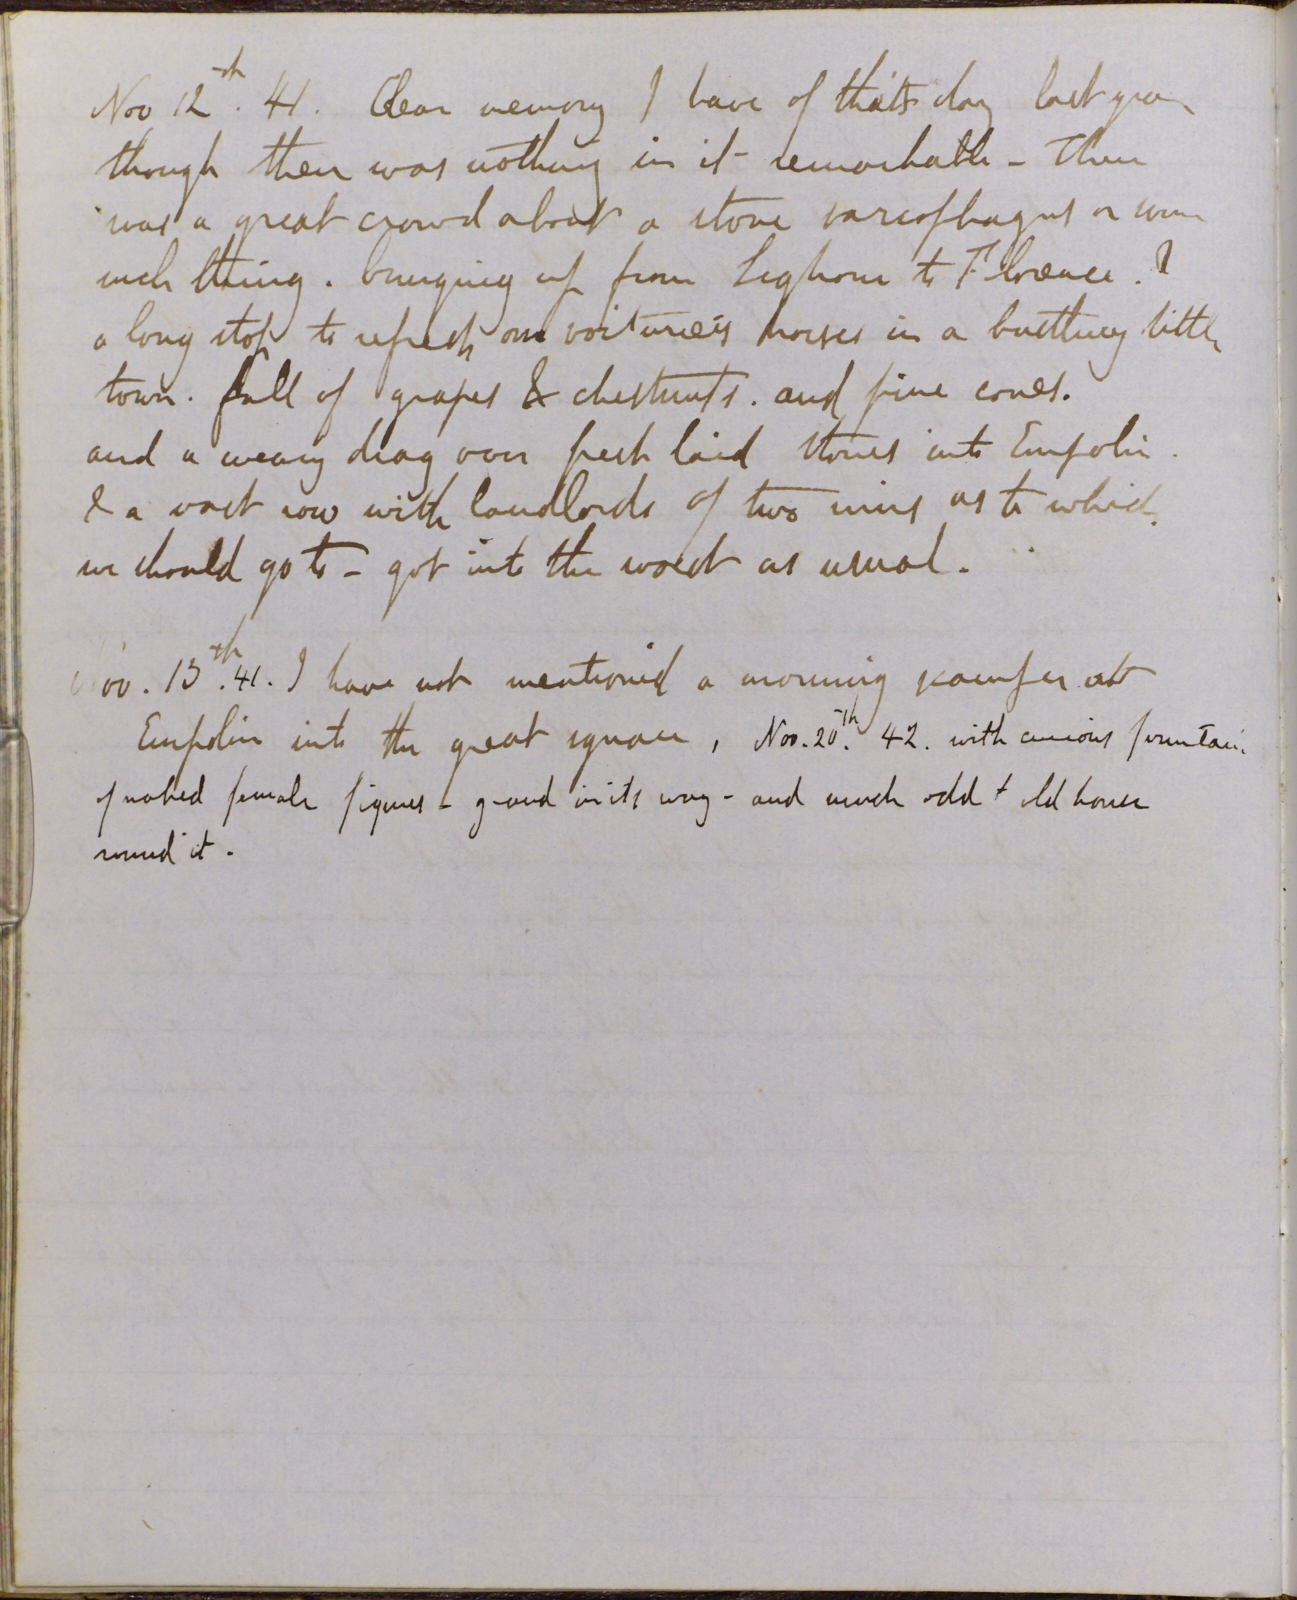 Nov 12th. 41. Clear memory I have of that day last year
though there was nothing in it remarkable - There
was a great crowd about a stone sarcophagus or some
such thing. bringing up from Leghorn to Florence. &
a long stop to refresh our voiturier's horses in a bustling little
town. full of grapes & chestnuts. and pine cones.
and a weary drag over fresh laid stones into Empoli.
& a vast row with landlords of two inns as to which
we should go to - got into the worst as usual.
Nov. 13th. 41. I have not mentioned a morning scamper at
Empoli into the great square, Nov. 20th. 42. with curious fountain
of naked female figures - grand in its way - and much odd & old house
round it.